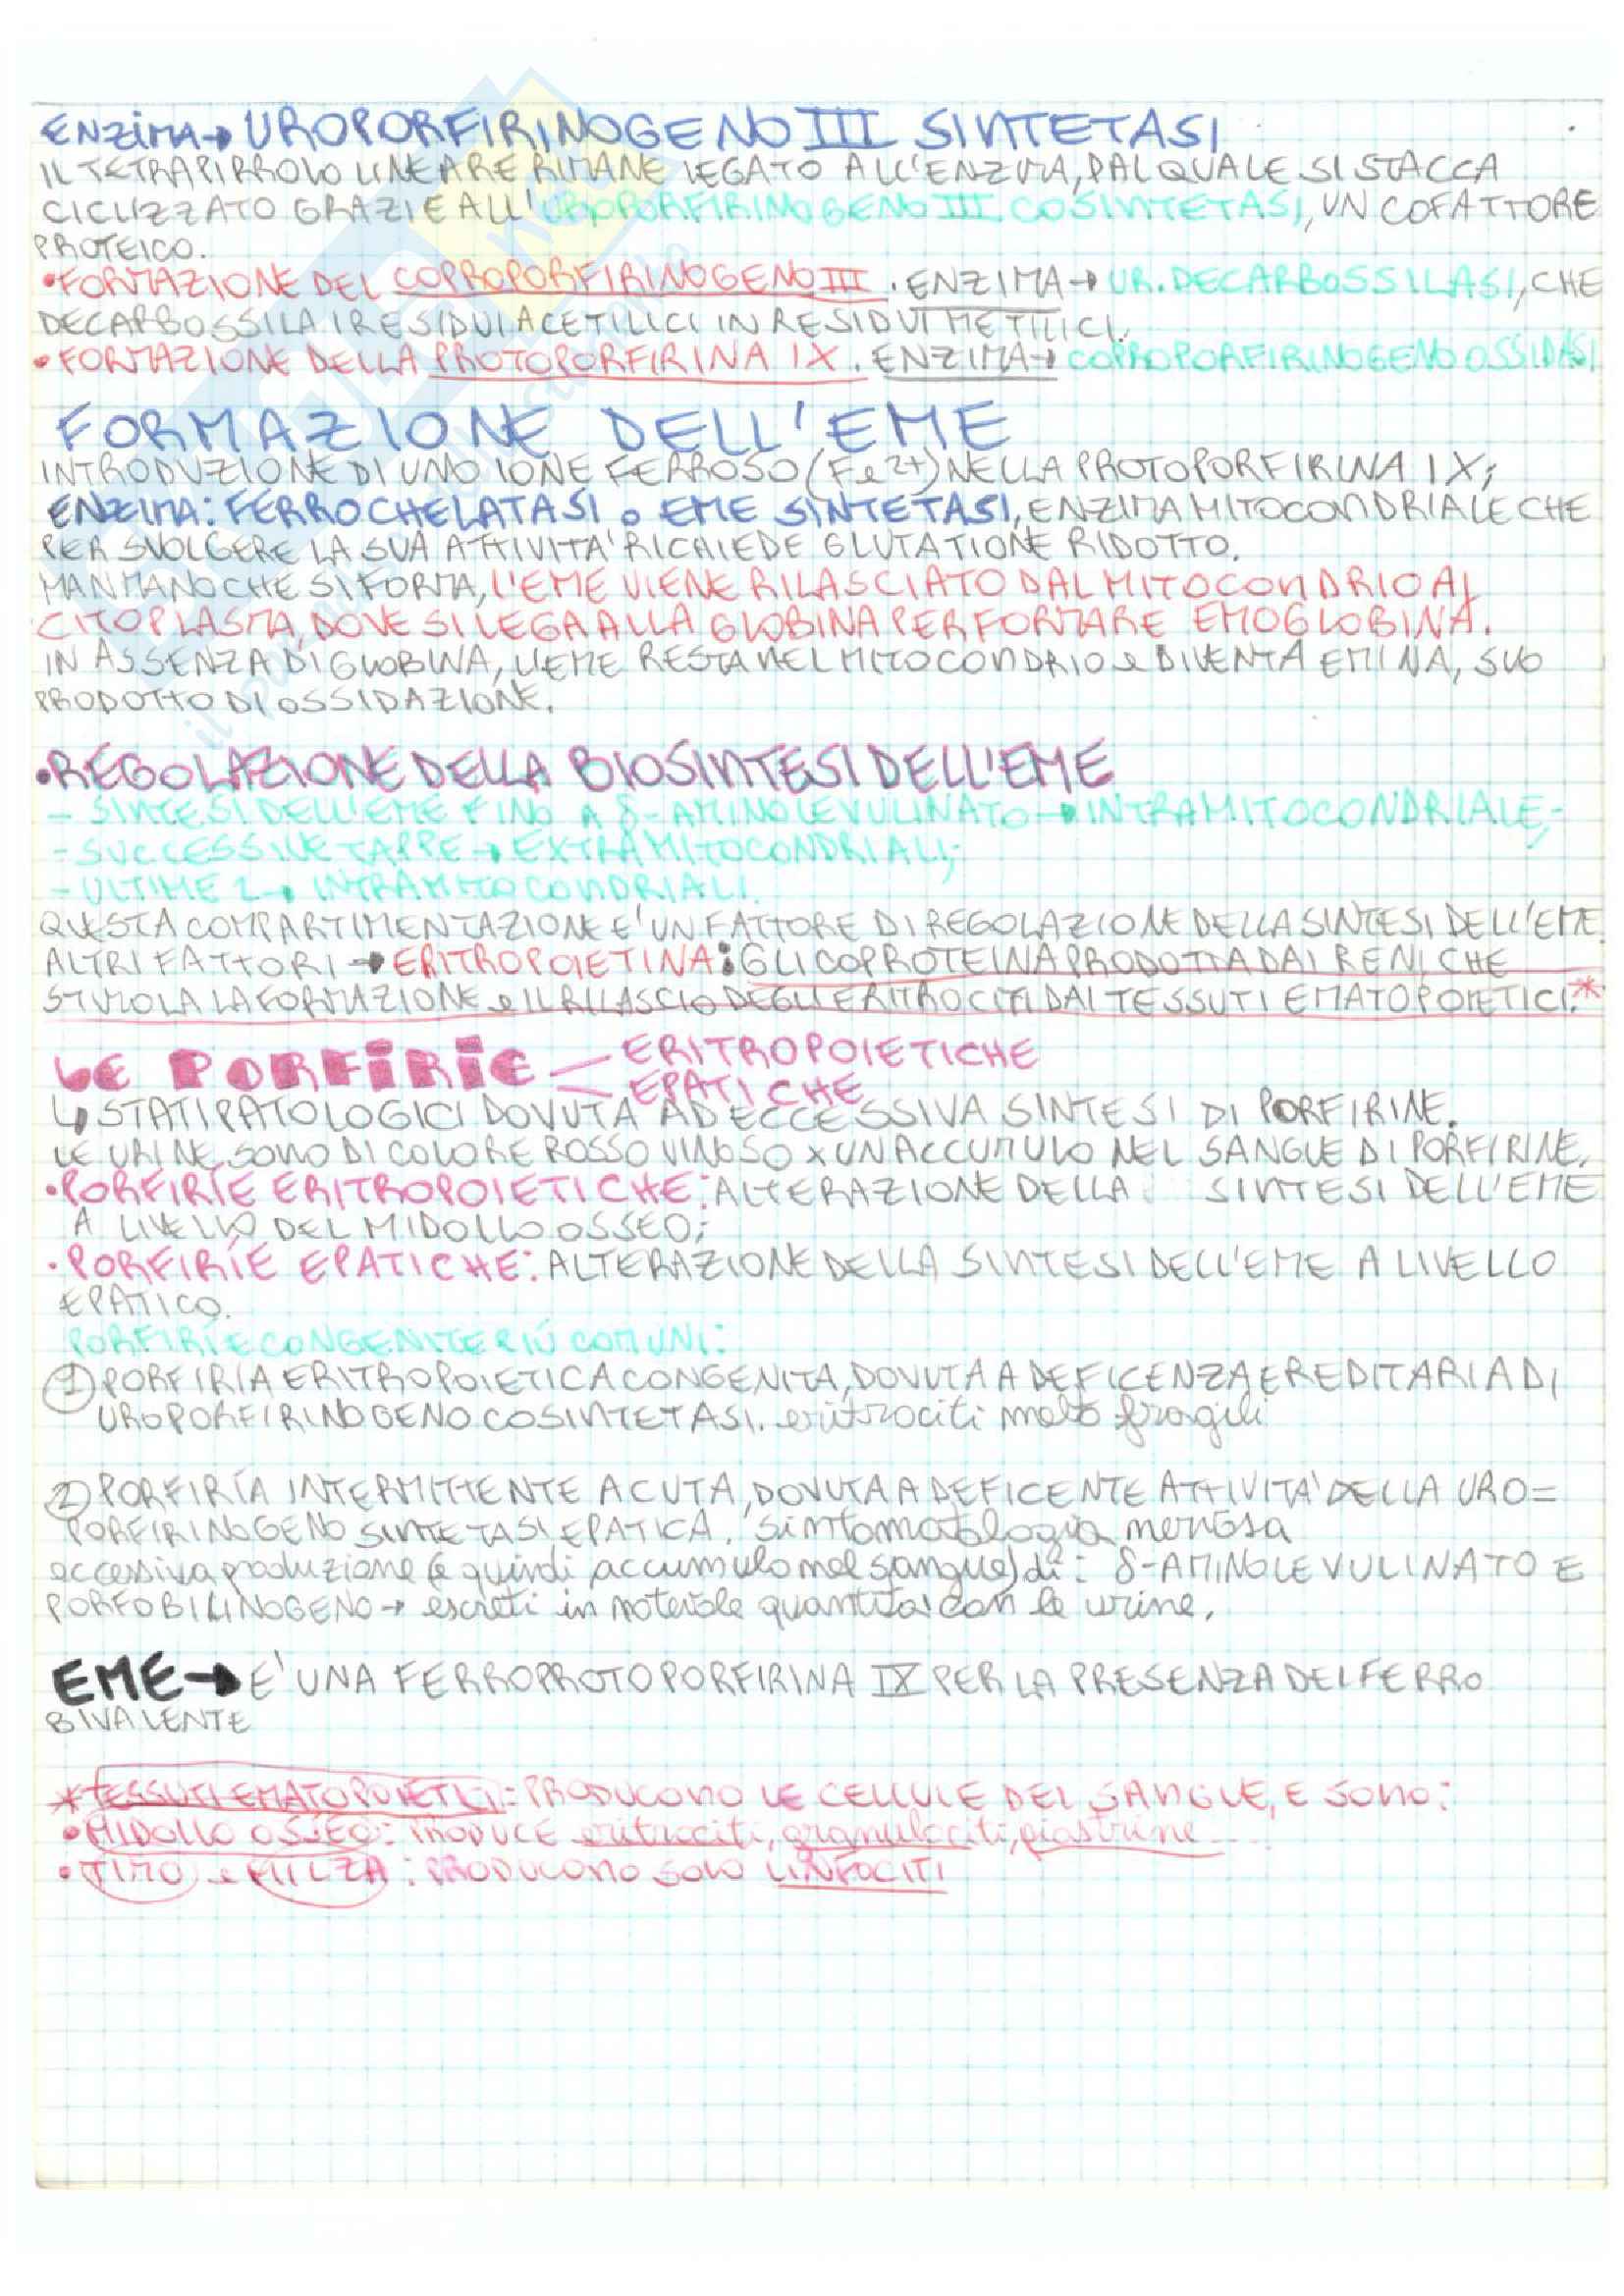 ENZIMA→ UROPORFIRINOGENO III SINTETASI
IL TETRAPIRROLO LINEARE RIMANE LEGATO ALL'ENZIMA, DAL QUALE SI STACCA
CICLIZZATO GRAZIE ALL'UROPORFIRINOGENO III COSINTETASI, UN COFATTORE
PROTEICO.
•FORMAZIONE DEL COPROPORFIRINOGENO III. ENZIMA→ UR. DECARBOSSILASI, CHE
DECARBOSSILA I RESIDUI ACETILICI IN RESIDUI METILICI.
•FORMAZIONE DELLA PROTOPORFIRINA IX. ENZIMA→ COPROPORFIRINOGENO OSSIDASI
FORMAZIONE DELL'EME
INTRODUZIONE DI UNO IONE FERROSO (Fe2+) NELLA PROTOPORFIRINA IX;
ENZIMA: FERROCHELATASI o EME SINTETASI, ENZIMA MITOCONDRIALE CHE
PER SVOLGERE LA SUA ATTIVITA' RICHIEDE GLUTATIONE RIDOTTO.
MAN MANO CHE SI FORMA, L'EME VIENE RILASCIATO DAL MITOCONDRIO AL
CITOPLASMA, DOVE SI LEGA ALLA GLOBINA PER FORMARE EMOGLOBINA.
IN ASSENZA DI GLOBINA, L'EME RESTA NEL MITOCONDRIO e DIVENTA EMINA, SUO
PRODOTTO DI OSSIDAZIONE.
•REGOLAZIONE DELLA BIOSINTESI DELL'EME
- SINTESI DELL'EME FINO A δ-AMINOLEVULINATO→ INTRAMITOCONDRIALE;
- SUCCESSIVE TAPPE→ EXTRAMITOCONDRIALI;
- ULTIME 2→ INTRAMITOCONDRIALI.
QUESTA COMPARTIMENTAZIONE E' UN FATTORE DI REGOLAZIONE DELLA SINTESI DELL'EME.
ALTRI FATTORI→ ERITROPOIETINA: GLICOPROTEINA PRODOTTA DAI RENI CHE
STIMOLA LA FORMAZIONE e IL RILASCIO DEGLI ERITROCITI DAI TESSUTI EMATOPOIETICI.*
LE PORFIRIE — ERITROPOIETICHE
— EPATICHE
↳ STATI PATOLOGICI DOVUTA AD ECCESSIVA SINTESI DI PORFIRINE.
LE URINE SONO DI COLORE ROSSO VINOSO x UN ACCUMULO NEL SANGUE DI PORFIRINE.
•PORFIRIE ERITROPOIETICHE: ALTERAZIONE DELLA SINTESI DELL'EME
A LIVELLO DEL MIDOLLO OSSEO;
•PORFIRIE EPATICHE: ALTERAZIONE DELLA SINTESI DELL'EME A LIVELLO
EPATICO.
PORFIRIE CONGENITE PIÙ COMUNI:
1) PORFIRIA ERITROPOIETICA CONGENITA, DOVUTA A DEFICENZA EREDITARIA DI
UROPORFIRINOGENO COSINTETASI. eritrociti molto fragili
2) PORFIRIA INTERMITTENTE ACUTA, DOVUTA A DEFICENTE ATTIVITA' DELLA URO=
PORFIRINOGENO SINTETASI EPATICA. sintomatologia nervosa
eccessiva produzione (e quindi accumulo nel sangue) di: δ-AMINOLEVULINATO E
PORFOBILINOGENO→ escreti in notevole quantita' con le urine.
EME→ E' UNA FERROPROTOPORFIRINA IX PER LA PRESENZA DEL FERRO
BIVALENTE
*TESSUTI EMATOPOIETICI: PRODUCONO LE CELLULE DEL SANGUE, E SONO:
•MIDOLLO OSSEO: PRODUCE eritrociti, granulociti, piastrine...
•TIMO e MILZA: PRODUCONO SOLO LINFOCITI